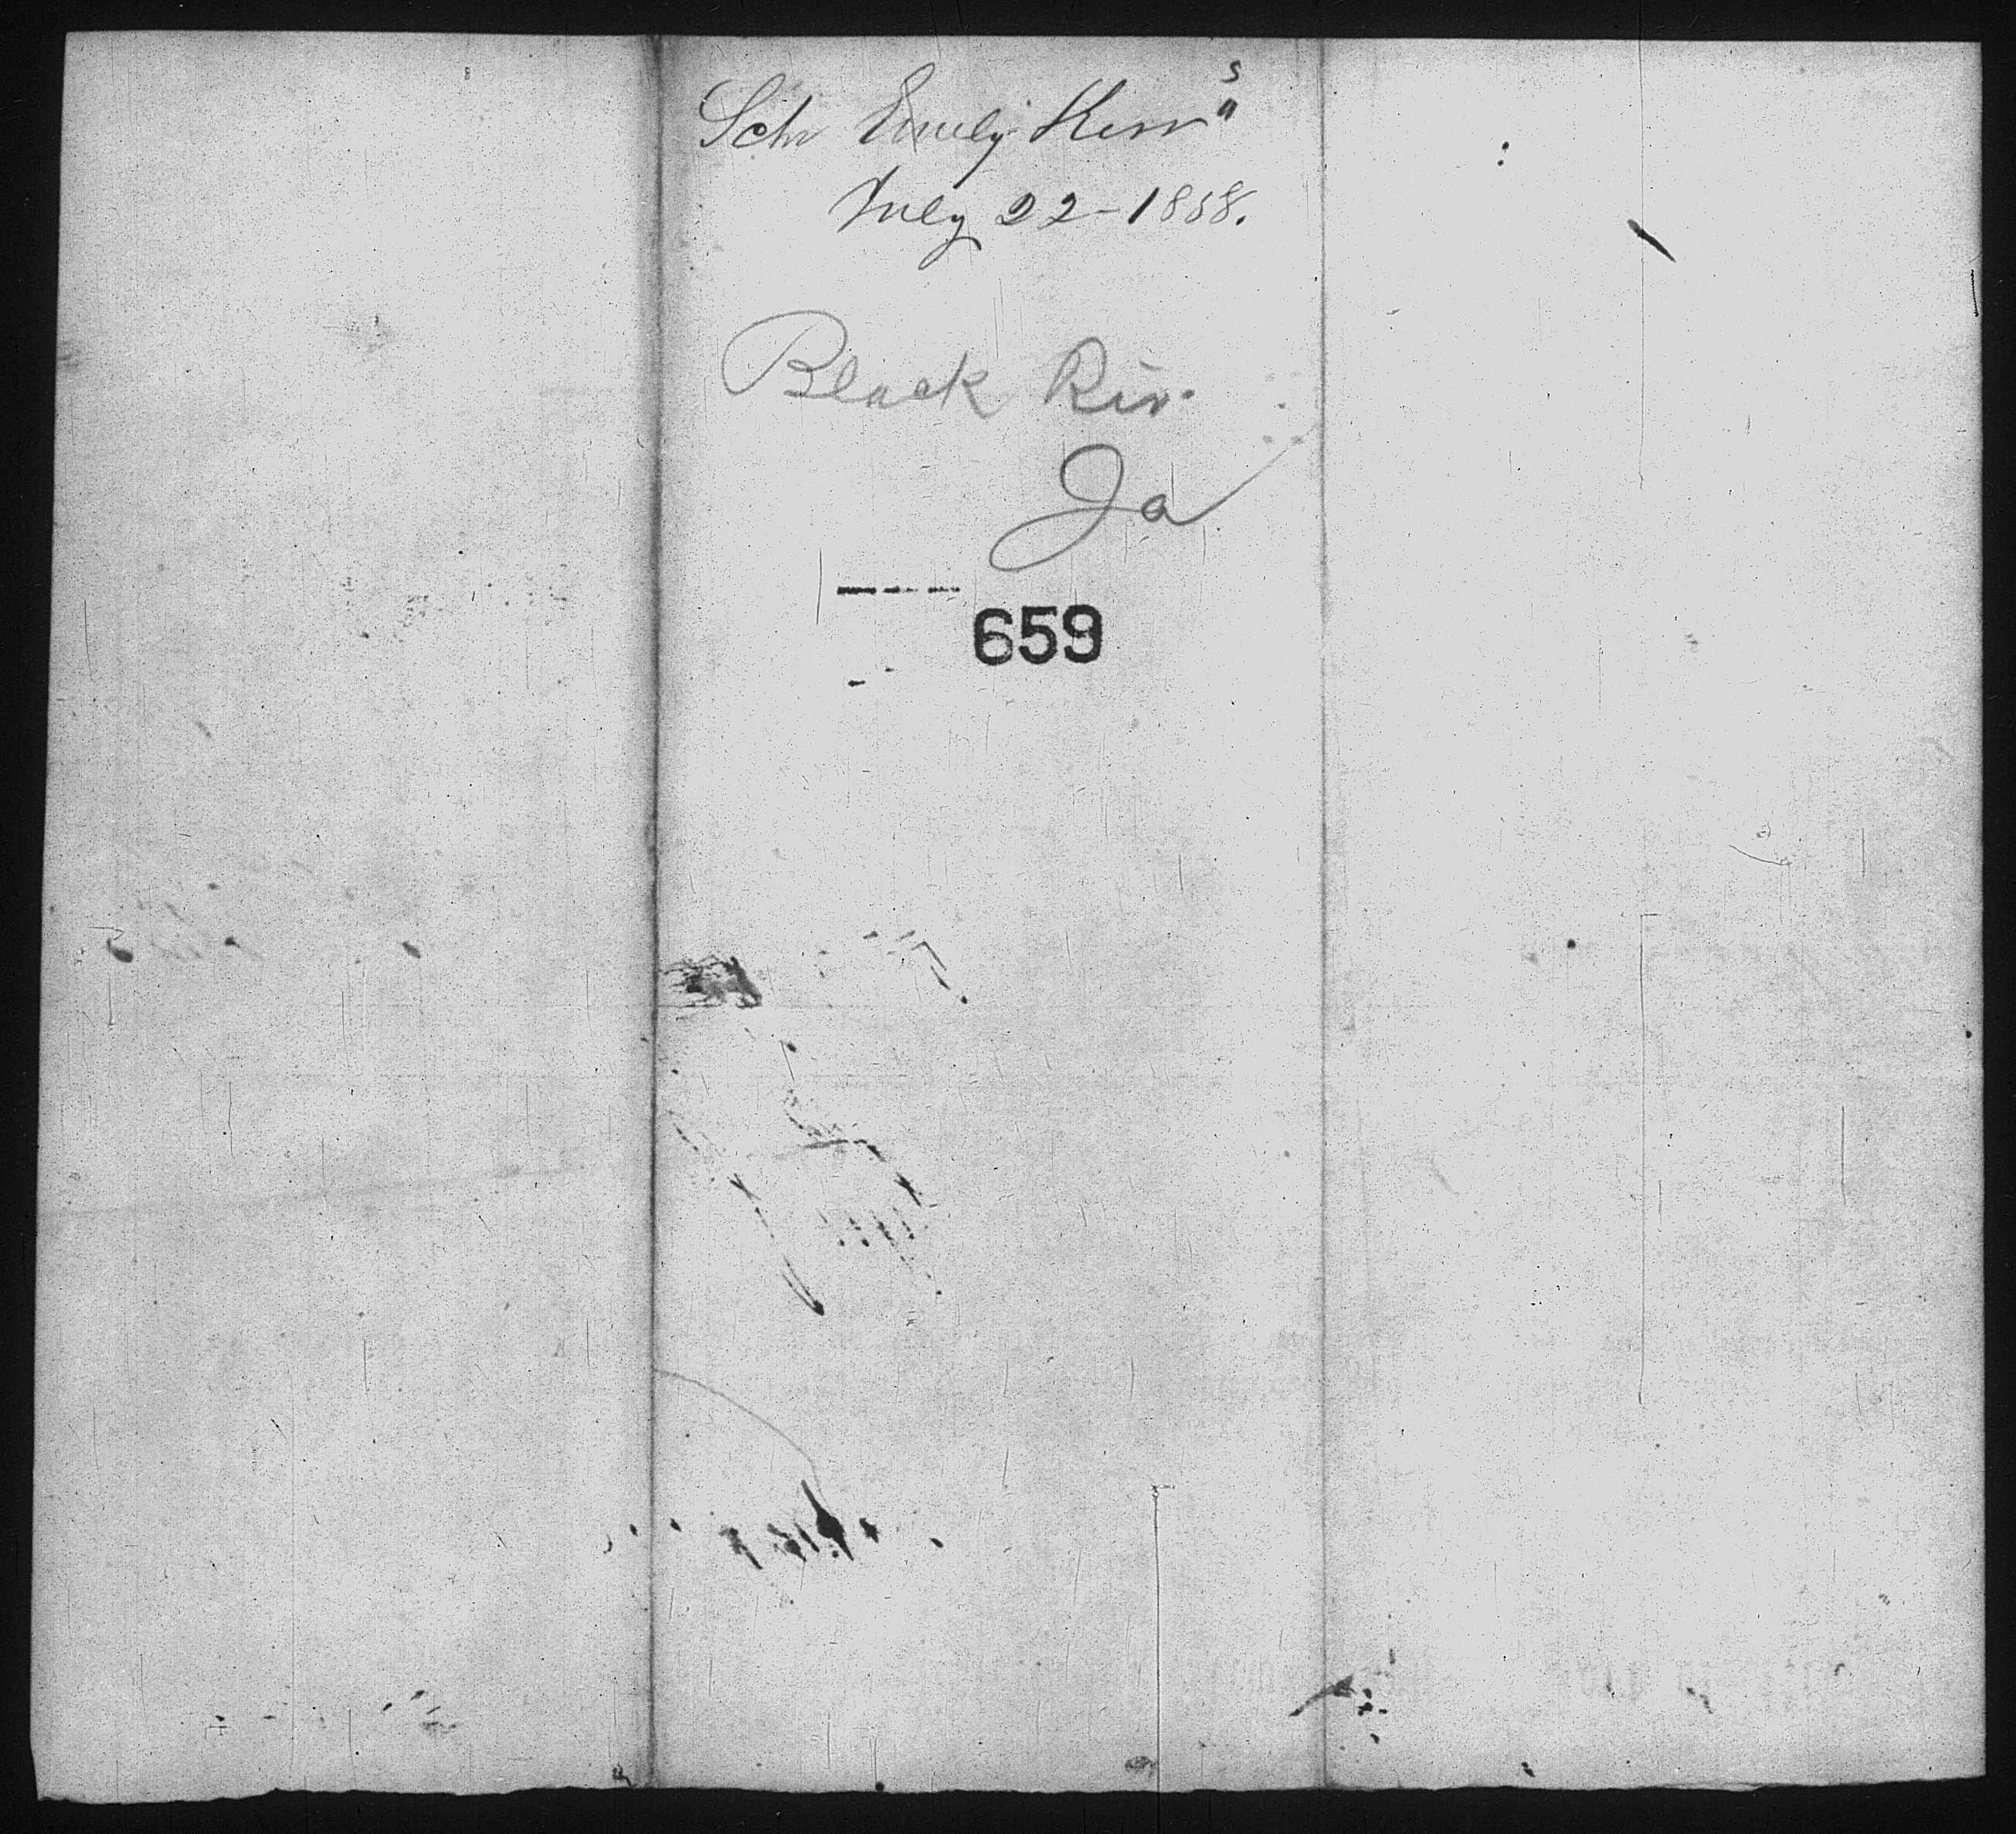 Schr Emily Kerr"
July 22-1858.
Black Riv.
Ja
659